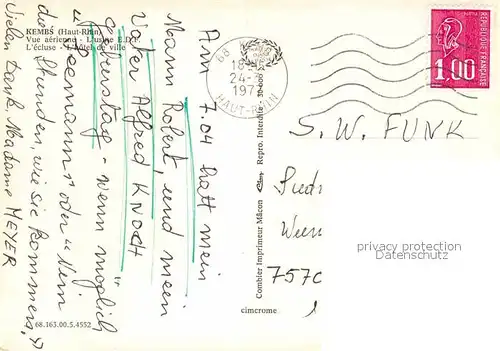 KEMBS (Haut-Rhin)
Vue aérienne - L'usine E.D.F.
L'écluse - L'hôtel de ville
Am 7.04 hatt mein
Mann Robert, und mein
Vater Alfred KNOCH
Geburtstag - wenn möglich
"Seemann" oder "Nein
die Stunden, wie sie kommen,"
Vielen Dank. Madame MEYER
68.163.00.5.4552
Combier Imprimeur Mâcon
Repro. Interdite
cimcrome
68
18
24-
197
HAUT-RHIN
REPUBLIQUE FRANÇAISE
1,00
S. W. FUNK
Südw
757
privacy protection
watermark